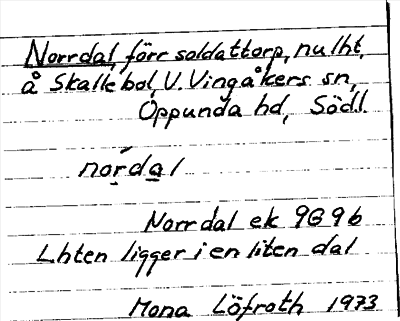 Norrdal, förr soldattorp, nu lht,
å Skallebol, V. Vingåkers sn,
Oppunda hd, Södl.
nórdal
Norrdal ek 9G9b
Lhten ligger i en liten dal
Mona Löfroth 1973